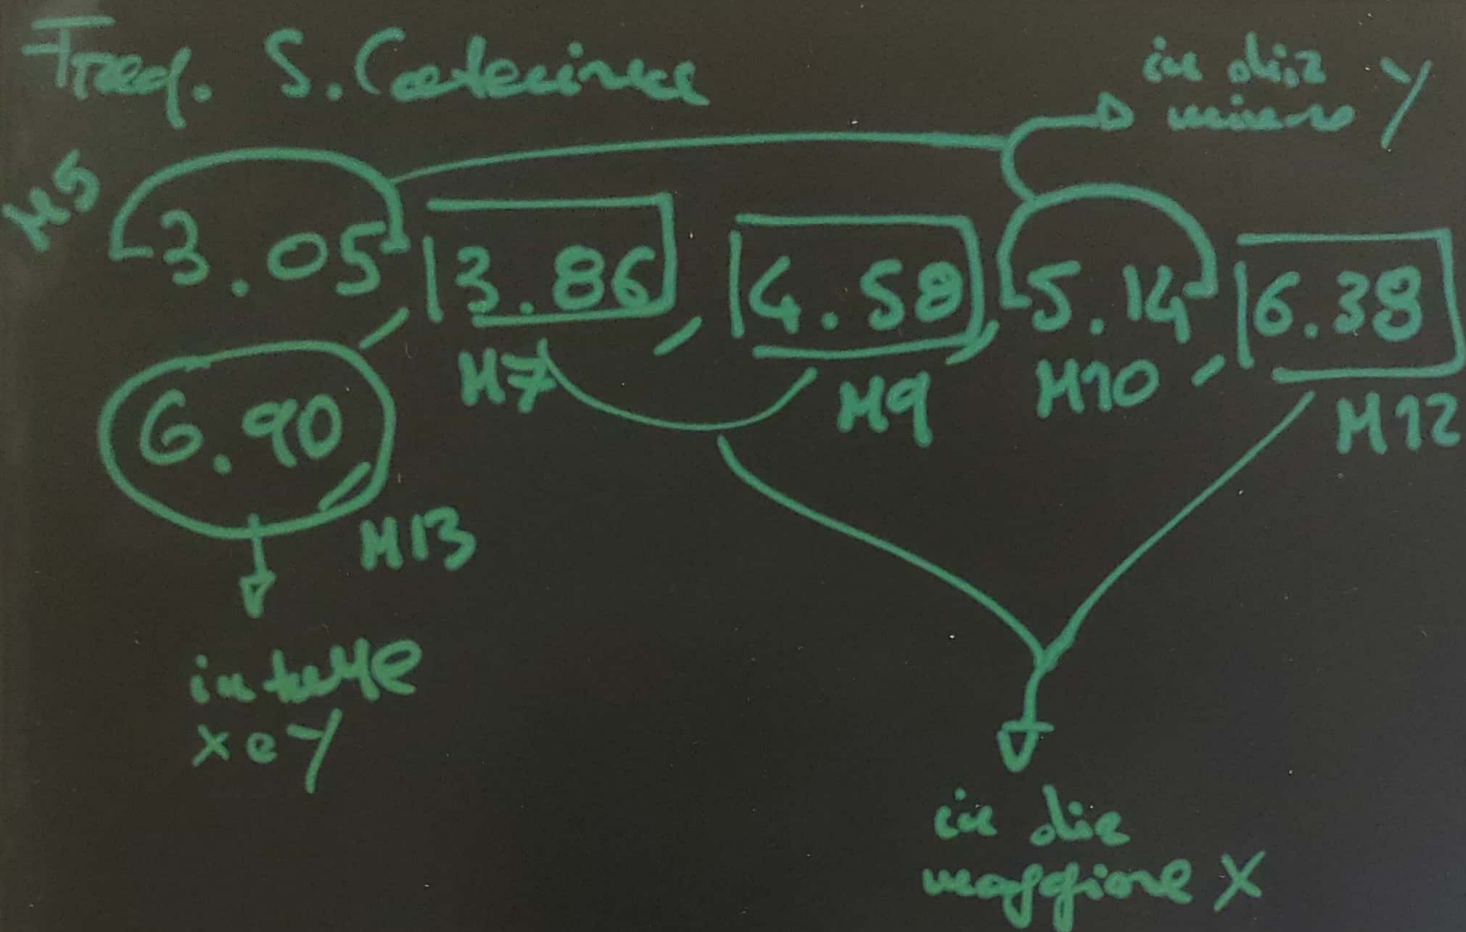 Freq. S. Caterina
in dir.
minore Y
M5
3.05 3.86 4.58 5.14 6.38
M7 M9 M10 M12
6.90
M13
in tutte
x e y
in dir
maggiore X